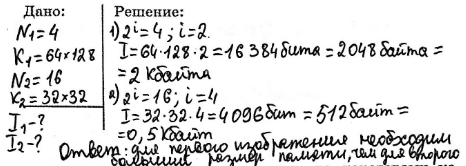 Дано:
N₁=4
K₁=64×128
N₂=16
K₂=32×32
I₁-?
I₂-?
Решение:
1) 2i=4; i=2.
I=64·128·2=16 384бита=2048байта=
=2 Кбайта
2) 2i=16; i=4
I=32·32·4=4096бит=512байт=
=0,5Кбайт
Ответ: для первого изображения необходим
больший размер памяти, чем для второго